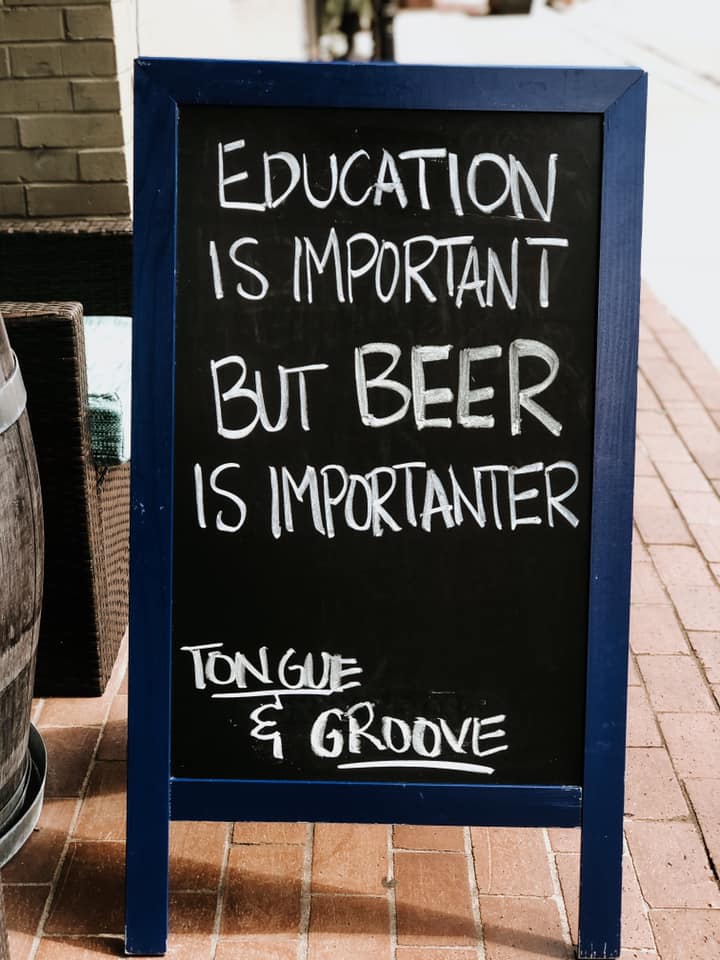 EDUCATION
IS IMPORTANT
BUT BEER
IS IMPORTANTER
TONGUE
& GROOVE